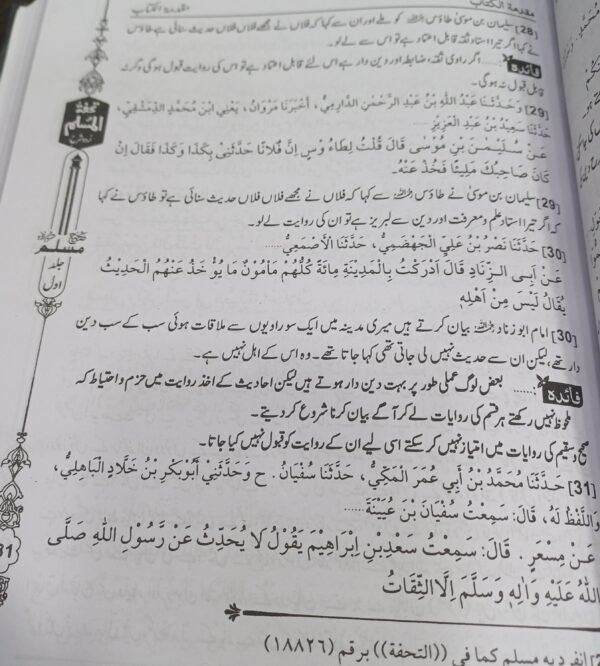 مقدمة الكتاب
مقدمة الكتاب
[28] سلیمان بن موسیٰ طاؤس رحمۃ اللہ کو ملے اور ان سے کہا کہ فلاں نے مجھے فلاں فلاں حدیث سنائی ہے تو طاؤس
نے کہا اگر تیرا استاد ثقہ قابل اعتماد ہے تو اس سے لے لو۔
فائدہ: ...... اگر راوی ثقہ، ضابط اور دین دار ہے اس لئے قابل اعتماد ہے تو اس کی روایت قبول ہو گی وگرنہ
قابل قبول نہ ہوگی۔
[29] وَحَدَّثَنَا عَبْدُ اللّٰهِ بْنُ عَبْدِ الرَّحْمٰنِ الدَّارِمِيُّ، أَخْبَرَنَا مَرْوَانُ، يَعْنِي ابْنَ مُحَمَّدٍ الدِّمَشْقِيَّ،
حَدَّثَنَا سَعِيدُ بْنُ عَبْدِ الْعَزِيزِ
عَنْ سُلَيْمٰنَ بْنِ مُوْسٰى قَالَ قُلْتُ لِطَاءُ وْسٍ إِنَّ فُلَانًا حَدَّثَنِى بِكَذَا وَكَذَا فَقَالَ إِنْ
كَانَ صَاحِبُكَ مَلِيًّا فَخُذْ عَنْهُ۔
[29] سلیمان بن موسیٰ نے طاؤس رحمۃ اللہ سے کہا کہ فلاں نے مجھے فلاں فلاں حدیث سنائی ہے تو طاؤس نے کہا
کہ اگر تیرا استاد علم و معرفت اور دین سے لبریز ہے تو ان کی روایت لے لو۔
[30] حَدَّثَنَا نَصْرُ بْنُ عَلِيِّ الْجَهْضَمِيُّ، حَدَّثَنَا الْأَصْمَعِيُّ......
عَنْ أَبِى الزِّنَادِ قَالَ أَدْرَكْتُ بِالْمَدِيْنَةِ مِائَةً كُلُّهُمْ مَأْمُوْنٌ مَا يُؤْخَذُ عَنْهُمُ الْحَدِيْثُ
يُقَالُ لَيْسَ مِنْ اَهْلِهِ
[30] امام ابو زناد رحمۃ اللہ بیان کرتے ہیں میری مدینہ میں ایک سو راویوں سے ملاقات ہوئی سب کے سب دین
دار تھے، لیکن ان سے حدیث نہیں لی جاتی تھی کہا جاتا تھے۔ وہ اس کے اہل نہیں ہے۔
فائدہ: ...... بعض لوگ عملی طور پر بہت دین دار ہوتے ہیں لیکن احادیث کے اخذ روایت میں حزم و احتیاط کہ
ملحوظ نہیں رکھتے ہر قسم کی روایات لے کر آگے بیان کرنا شروع کر دیتے۔
صحیح و سقیم کی روایات میں امتیاز نہیں کر سکتے اسی لیے ان کے روایت کو قبول نہیں کیا جاتا۔
[31] حَدَّثَنَا مُحَمَّدُ بْنُ أَبِي عُمَرَ الْمَكِّيُّ، حَدَّثَنَا سُفْيَانُ . ح وَحَدَّثَنِي أَبُوْبَكْرِ بْنُ خَلَّادٍ الْبَاهِلِيُّ،
وَاللَّفْظُ لَهُ، قَالَ: سَمِعْتُ سُفْيَانَ بْنَ عُيَيْنَةَ......
عَنْ مِسْعَرٍ . قَالَ: سَمِعْتُ سَعْدَ بْنَ إِبْرَاهِيْمَ يَقُوْلُ لَا يُحَدِّثُ عَنْ رَّسُوْلِ اللّٰهِ صَلَّى
اللّٰهُ عَلَيْهِ وَاٰلِهٖ وَسَلَّمَ اِلَّا الثِّقَاتُ
انفرد به مسلم كما في ((التحفة)) برقم (١٨٨٢٦)
تحفۃ
المسلم
صحیح
مسلم
جلد
اول
31